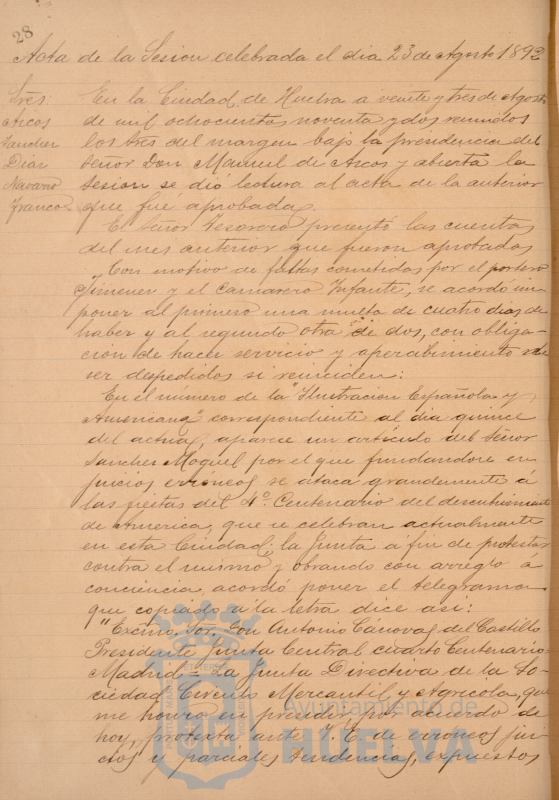 28
Acta de la Sesion celebrada el dia 23 de Agosto 1892
Sres:
Arcos
Sanchez
Diaz
Navarro
Franco
En la Ciudad de Huelva a veinte y tres de Agosto
de mil ochocientos noventa y dos reunidos
los tres del margen bajo la presidencia del
Señor Don Manuel de Arcos y abierta la
sesion se dió lectura al acta de la anterior
que fue aprobada.
El Señor Tesorero presentó las cuentas
del mes anterior que fueron aprobadas
Con motivo de faltas cometidas por el portero
Jimenez y el Camarero Infante, se acordo im
poner al primero una multa de cuatro dias de
haber y al segundo otra de dos, con obliga-
cion de hacer servicio y apercibimiento de
ser despedidos si reinciden:
En el numero de la "Ilustracion Española y
Americana" correspondiente al dia quince
del actual, aparece un articulo del Señor
Sanchez Moguel por el que fundandose en
juicios erróneos se ataca grandemente á
las fiestas del 4º. Centenario del descubrimiento
de America, que se celebran actualmente
en esta Ciudad, la Junta á fin de protestar
contra el mismo y obrando con arreglo a
conciencia, acordó poner el telegrama
que copiado a la letra dice asi:
"Excmo. Sor. Don Antonio Cánovas del Castillo
Presidente Junta Central cuarto Centenario-
Madrid = La Junta Directiva de la So-
ciedad Circulo Mercantil y Agricola, que
me honro en presidir, por acuerdo de
hoy, protesta ante V. E. de erroneos jui-
cios y parciales tendencias, expuestos
Ayuntamiento de
HUELVA